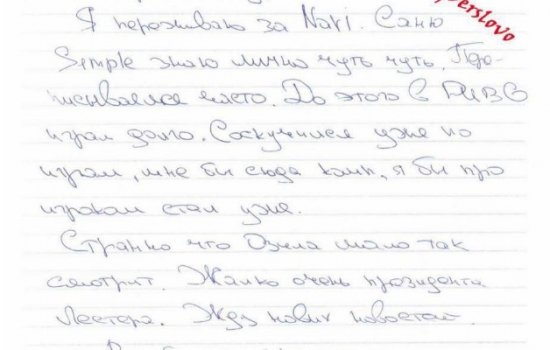 Я переживаю за Navi. Саню
Simple знаю лично чуть чуть. Пере
писываемся часто. До этого в PUBG
играл долго. Соскучился уже по
играм, мне бы сюда комп, я бы про
игроком стал уже.
Странно что Озила мало так
смотрит. Жалко очень президента
Лестера. Жду новых новостей.